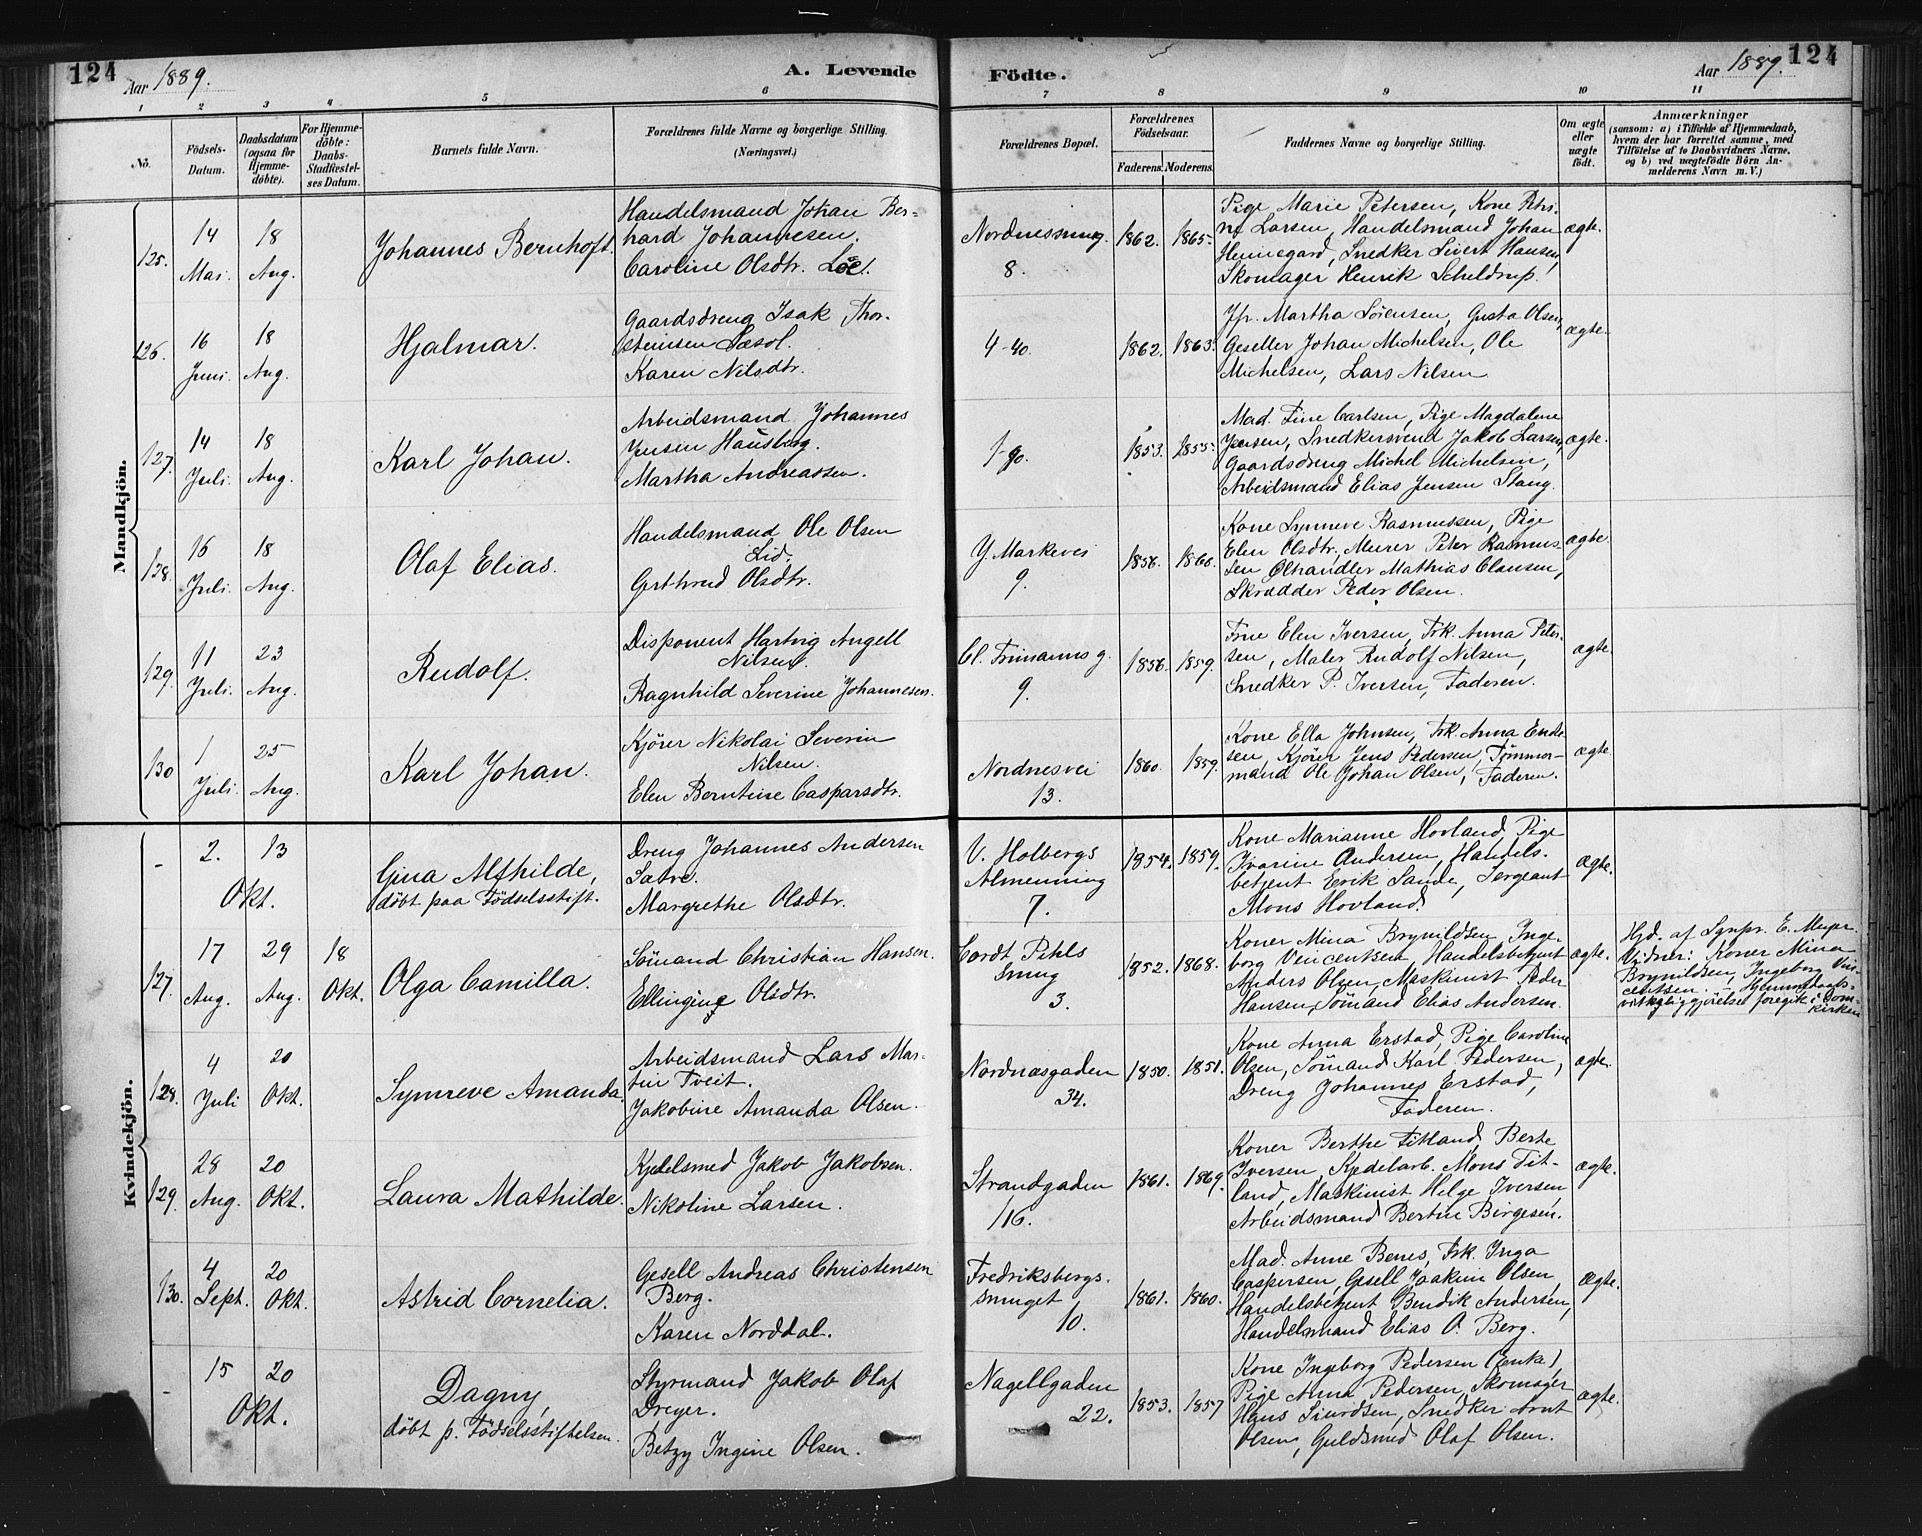 124
Aar 1889.
A. Levende
Födte.
Aar 1889.
124
1 2 3 4 5 6 7 8 9 10 11
No.
Födsels-
Datum.
Daabsdatum
(ogsaa for
Hjemme-
döbte).
For Hjemme-
döbte:
Daabs-
Stadfæstel-
ses Datum.
Barnets fulde Navn.
Forældrenes fulde Navne og borgerlige Stilling.
(Næringsvei.)
Forældrenes Bopæl.
Forældrenes
Födselsaar.
Faderens. Moderens.
Faddernes Navne og borgerlige Stilling.
Om ægte
eller
uægte
födt.
Anmærkninger
(saasom: a) i Tilfælde af Hjemmedaab,
hvem der har forrettet samme, med
Tilföielse af to Daabsvidners Navne,
og b) ved uægtefödte Börn An-
melderens Navn m. V.)
Mandkjön.
125.
14
Mai.
18
Aug.
Johannes Bernhoft.
Handelsmand Johan Ber-
hard Johannesen.
Caroline Olsdtr.
Nordnessmug.
8.
1862. 1865.
Pige Marie Petersen, Kone Petri-
ne Larsen, Handelsmand Johan
Hennegard, Snedker Sivert Hansen,
Skomager Henrik Scheldrup.
ægte.
126.
16
Juni.
18
Aug.
Hjalmar.
Gaardsdreng Isak Thor-
steinsen Læsöl.
Karen Nilsdtr.
4-40.
1862. 1863.
Jfr. Martha Sörensen, Gusta Olsen,
Geseller Johan Michelsen, Ole
Michelsen, Lars Nilsen
ægte.
127.
14
Juli.
18
Aug.
Karl Johan.
Arbeidsmand Johannes
Jensen Hausberg.
Martha Andreassen.
1-90.
1853. 1855.
Mad. Fine Carlsen, Pige Magdalene
Jensen, Snedkersvend Jakob Larsen,
Gaardsdreng Michel Michelsen,
Arbeidsmand Elias Jensen Stang.
ægte.
128.
16
Juli.
18
Aug.
Olaf Elias.
Handelsmand Ole Olsen
Lid.
Gerthrud Olsdtr.
Y Markevei
9.
1856. 1866.
Kone Synneve Rasmussen, Pige
Elen Olsdtr., Murer Peter Rasmus-
sen Ölhandler Mathias Clausen,
Skrædder Peder Olsen.
ægte.
129.
11
Juli.
23
Aug.
Rudolf.
Disponent Hartvig Angell
Nilsen.
Ragnhild Severine Johannesen.
Cl. Frimannsg.
9.
1856. 1859.
Frue Elen Iversen, Frk. Anna Peter-
sen, Maler Rudolf Nilsen,
Snedker P. Iversen, Faderen.
ægte.
130
1
Juli.
25
Aug.
Karl Johan.
Kjörer Nikolai Severin
Nilsen.
Elen Berntine Casparsdtr.
Nordnesvei
13.
1860. 1859.
Kone Ella Johnsen, Frk. Anna Endre-
sen, Kjörer Jens Pedersen, Tömmer-
mand Ole Johan Olsen, Faderen.
ægte
Kvindekjön.
-
2. 13
Okt.
Gina Mthilde,
döbt paa Födselsstift.
Dreng Johannes Andersen
Sætre.
Margrethe Olsdtr.
V. Holbergs
Almenning
7.
1854. 1859.
Kone Marianne Hovland, Pige
Ivarine Andersen, Handels-
betjent Erik Sande, Sergeant
Mons Hovland.
ægte.
127.
17
Aug.
29
Aug.
18
Okt.
Olga Camilla.
Sömand Christian Hansen.
Ellingine Olsdtr.
Cordt Pihls
smug
3.
1852. 1868.
Koner Mina Brynildsen, Inge-
borg Vincentsen, Handelsbetjent
Anders Olsen, Maskinist Peder
Hansen, Sömand Elias Andersen.
ægte.
Hjd. af Sgnpr. E. Meyer.
Vidner: Koner Mina
Brynildsen, Ingeborg Vin-
centsen. - Hjemmedaabs-
vitterliggjörelse foregik i Dom-
kirken
128.
4
Juli
20
Okt.
Synneve Amanda.
Arbeidsmand Lars Mar-
tin Tveit.
Jakobine Amanda Olsen.
Nordnæsgaden
34.
1850. 1851.
Kone Anna Erstad, Pige Caroline
Olsen, Sömand Karl Pedersen,
Dreng Johannes Erstad,
Faderen.
ægte.
129.
28
Aug.
20
Okt.
Laura Mathilde.
Kjedelsmed Jakob Jakobsen.
Nikoline Larsen.
Strandgaden
116.
1861. 1869.
Koner Berthe Titland, Berte
Iversen, Kjedelarb. Mons Tit-
land, Maskinist Helge Iversen,
Arbeidsmand Bertin Birgesen.
ægte.
130.
4
Sept.
20
Okt.
Astrid Cornelia.
Gesell Andreas Christensen
Berg.
Karen Norddal.
Fredriksbergs-
smuget
10.
1861. 1860.
Mad. Anne Benes, Frk. Inga
Caspersen, Gesell Joakim Olsen,
Handelsbetjent Bendik Andersen,
Handelsmand Elias O. Berg.
Ægte.
-
15 20
Okt.
Dagny,
döbt p. Födselsstiftelsen.
Styrmand Jakob Olaf
Dreyer.
Betzy Ingine Olsen.
Nagellgaden
22.
1853. 1857
Kone Ingeborg Pedersen (Enke),
Pige Anna Pedersen, Skomager
Hans Siurdsen, Snedker Arnt
Olsen, Guldsmed Olaf Olsen.
ægte.